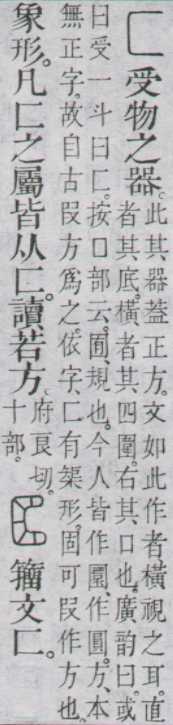 匚 受物之器。
此其器蓋正方。文如此作者橫視之耳。直
者其底。橫者其四圍。右其口也。廣韵曰。或
曰受一斗曰匚。按口部云。規也。今人皆作圜、作圓。方、本
無正字。故自古叚方爲之。依字、匚有榘形。固可叚作方也。
象形。凡匚之屬皆从匚。讀若方。
府良切。
十部。
籒文匚。